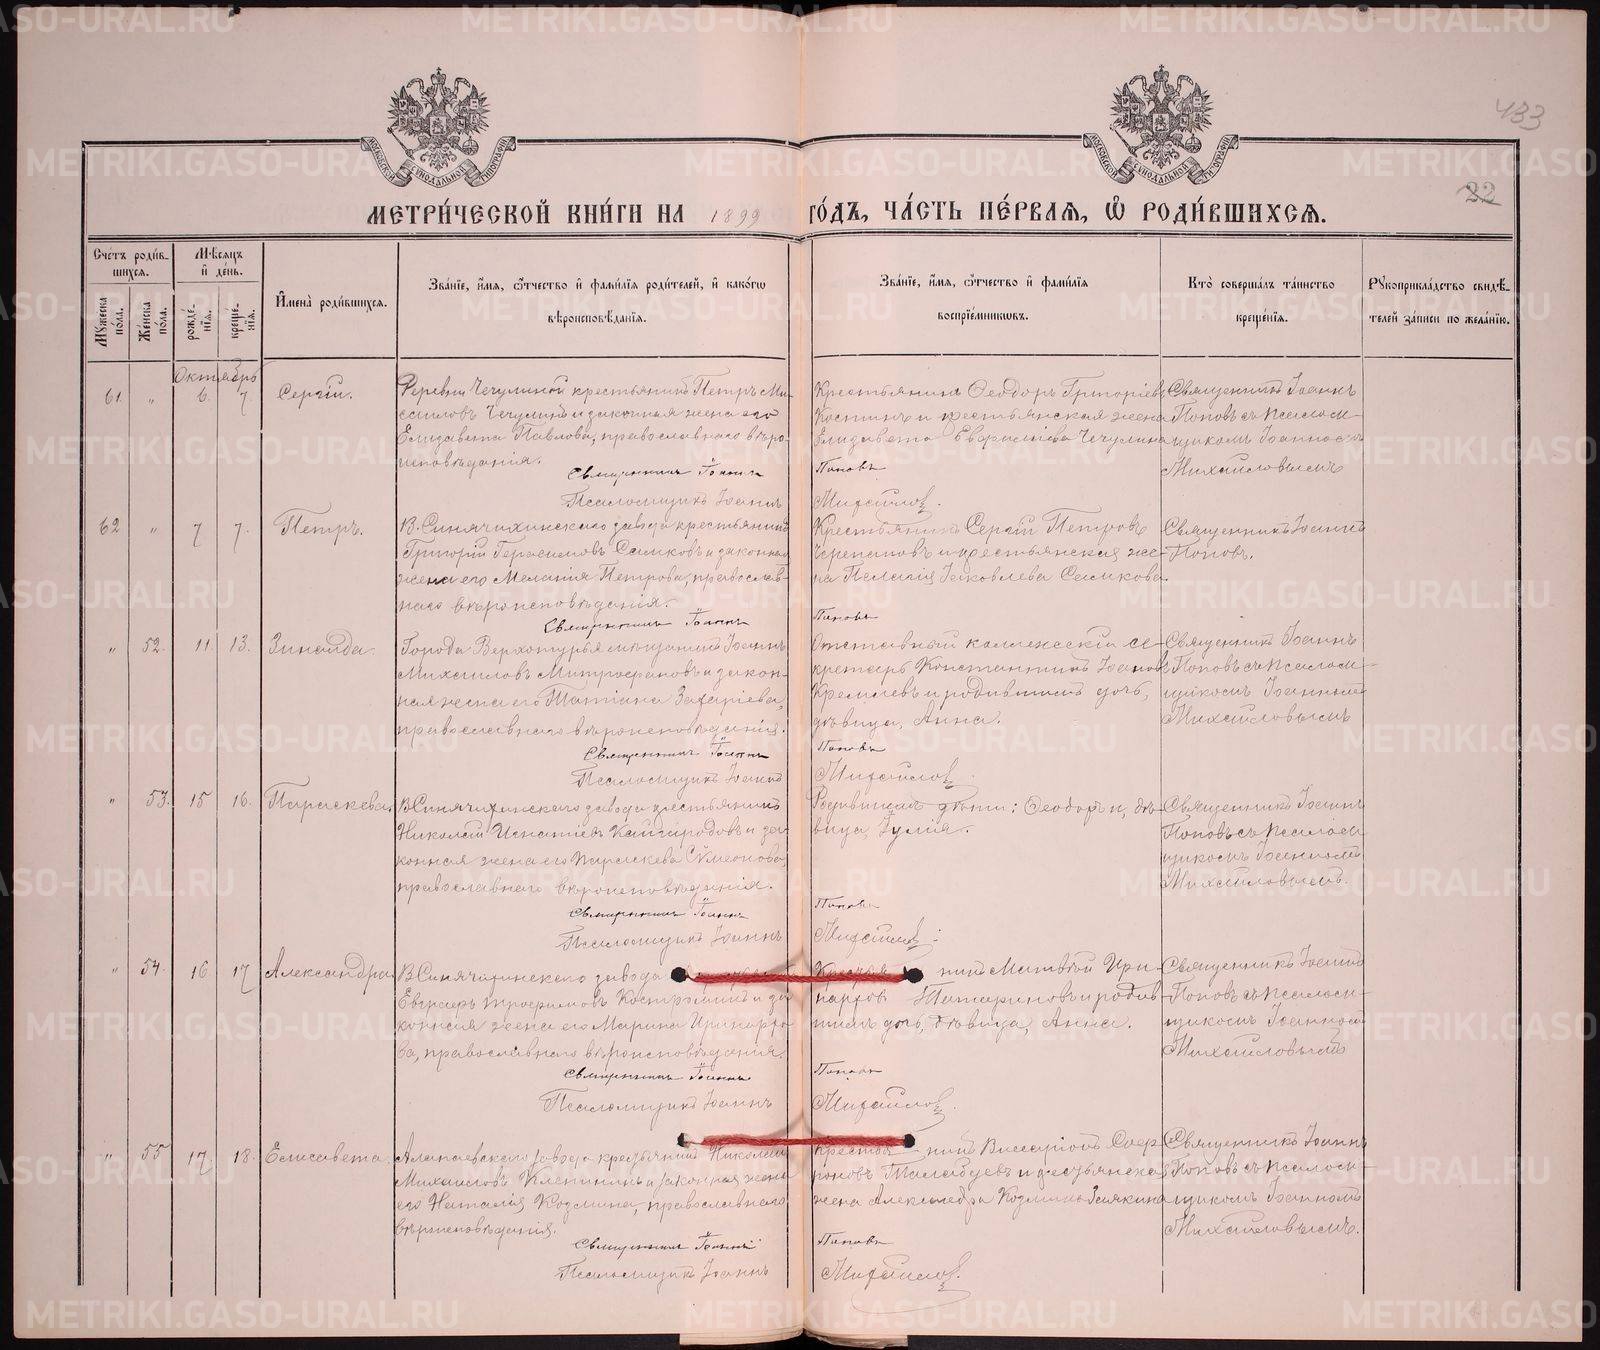 433
22
МЕТРИ́ЧЕСКОЙ КНИ́ГИ НА 1899 ГО́ДЪ, ЧА́СТЬ ПЕ́РВАѦ, Ѡ҆ РОДИ́ВШИХСѦ.
Сче́тъ роди́в-
шихсѧ.
Мꙋ́жеска по́ла.
Же́нска по́ла.
Мѣ́сѧцъ
и҆ де́нь.
рожде́-
нїѧ.
креще́-
нїѧ.
И҆мена̀ роди́вшихсѧ.
Зва́нїе, и҆́мѧ, ѻ҆́тчество и҆ фами́лїѧ роди́телей, и҆ како́гѡ
вѣроисповѣ́данїѧ.
Зва́нїе, и҆́мѧ, ѻ҆́тчество и҆ фами́лїѧ
воспрїе́мникѡвъ.
Кто̀ соверша́лъ та́инство
креще́нїѧ.
Рꙋкоприкла́дство свидѣ́-
телей за́писи по жела́нїю.
Октябрь
61. " 6. 7 Сергій.
Деревни Чечулиной крестьянинъ Петръ Ми-
хаиловъ Чечулинъ и законная жена его
Елизавета Павлова, православнаго вѣро-
исповѣданія.
Священникъ Іоаннъ Поповъ
Псаломщикъ Іоаннъ Михайловъ.
Крестьянинъ Ѳеодоръ Григоріевъ
Костинъ и крестьянская жена
Елизавета Чечулина
Священникъ Іоаннъ
Поповъ съ псалом-
щикомъ Іоанномъ
Михайловымъ
62 " 7 7. Петръ.
В. Синячихинскаго завода крестьянинъ
Григорій Герасимовъ Самковъ и законная
жена его Меланія Петрова, православ-
наго вѣроисповѣданія.
Священникъ Іоаннъ Поповъ
Крестьянинъ Сергій Петровъ
Черепановъ и крестьянская же-
на Пелагія Іаковлева Самкова.
Священникъ Іоаннъ
Поповъ.
" 52. 11. 13. Зинаида.
Города Верхотурья мѣщанинъ Іоаннъ
Михаиловъ Митрофановъ и закон-
ная жена его Татіана Захаріева,
православнаго вѣроисповѣданія.
Священникъ Іоаннъ Поповъ
Псаломщикъ Іоаннъ Михайловъ.
Отставный се-
кретарь Константинъ Іоанновъ
и родившихъ дочь,
дѣвица, Анна.
Священникъ Іоаннъ
Поповъ съ псалом-
щикомъ Іоанномъ
Михайловымъ
" 53. 15 16. Параскева.
В. Синячихинскаго завода крестьянинъ
Николай Игнатіевъ Кайгородовъ и за-
конная жена его Параскева Сѵмеонова,
православнаго вѣроисповѣданія.
Священникъ Іоаннъ Поповъ
Псаломщикъ Іоаннъ Михайловъ.
Родившихъ дѣти: Ѳеодоръ и, дѣ-
вица, Іулія.
Священникъ Іоаннъ
Поповъ съ псалом-
щикомъ Іоанномъ
Михайловымъ.
" 54. 16 17 Александра.
В. Синячихинскаго завода
Трофимовъ Костроминъ и за-
конная жена его Марина Иринархо-
ва, православнаго вѣроисповѣданія.
Священникъ Іоаннъ Поповъ
Псаломщикъ Іоаннъ Михайловъ.
нинъ Матѳей Ири-
нарховъ Татариновъ и родив-
шихъ дочь, дѣвица, Анна.
Священникъ Іоаннъ
Поповъ съ псалом-
щикомъ Іоанномъ
Михайловымъ
" 55 17. 18. Елисавета.
Алапаевскаго завода крестьянинъ Николай
Михаиловъ Клепининъ и законная жена
его Наталія Козмина, православнаго
вѣроисповѣданія.
Священникъ Іоаннъ Поповъ
Псаломщикъ Іоаннъ Михайловъ.
нинъ Виссаріонъ Соф-
роновъ и крестьянская
жена Александра Козмина
Священникъ Іоаннъ
Поповъ съ псалом-
щикомъ Іоанномъ
Михайловымъ.
METRIKI.GASO-URAL.RU